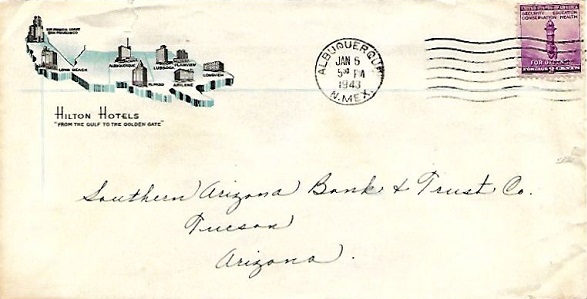 SIR FRANCIS DRAKE
SAN FRANCISCO
LONG BEACH
ALBUQUERQUE
LUBBOCK
PLAINVIEW
EL PASO
ABILENE
LONGVIEW
HILTON HOTELS
"FROM THE GULF TO THE GOLDEN GATE"
ALBUQUERQUE
JAN 5
5 PM
1943
N. MEX.
SECURITY EDUCATION
CONSERVATION HEALTH
FOR DEFENSE
Southern Arizona Bank & Trust Co.
Tucson
Arizona.